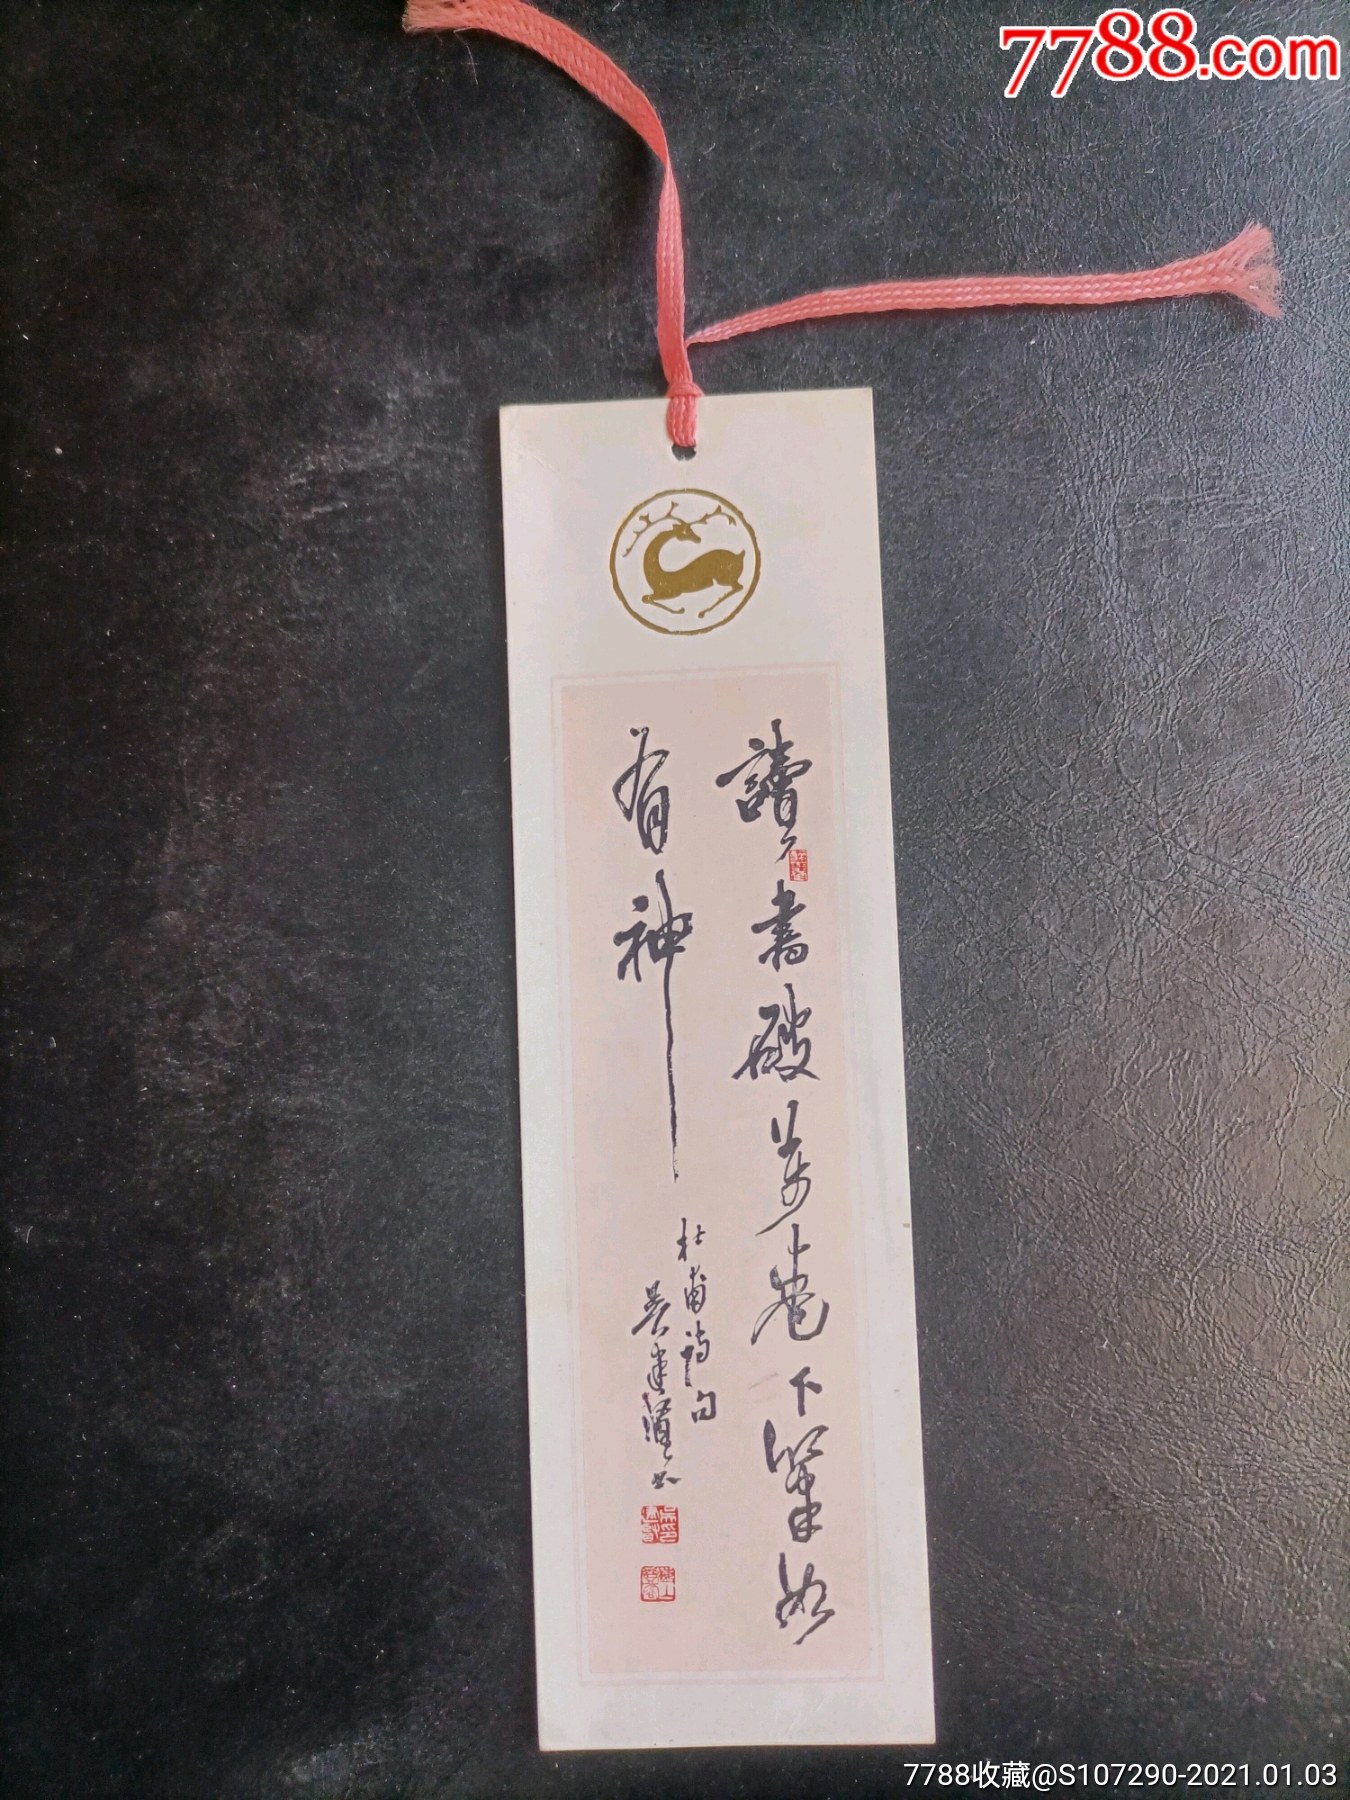 7788.com
讀書破萬卷下筆如
有神
杜甫詩句
吴建賢书
7788收藏@S107290-2021.01.03